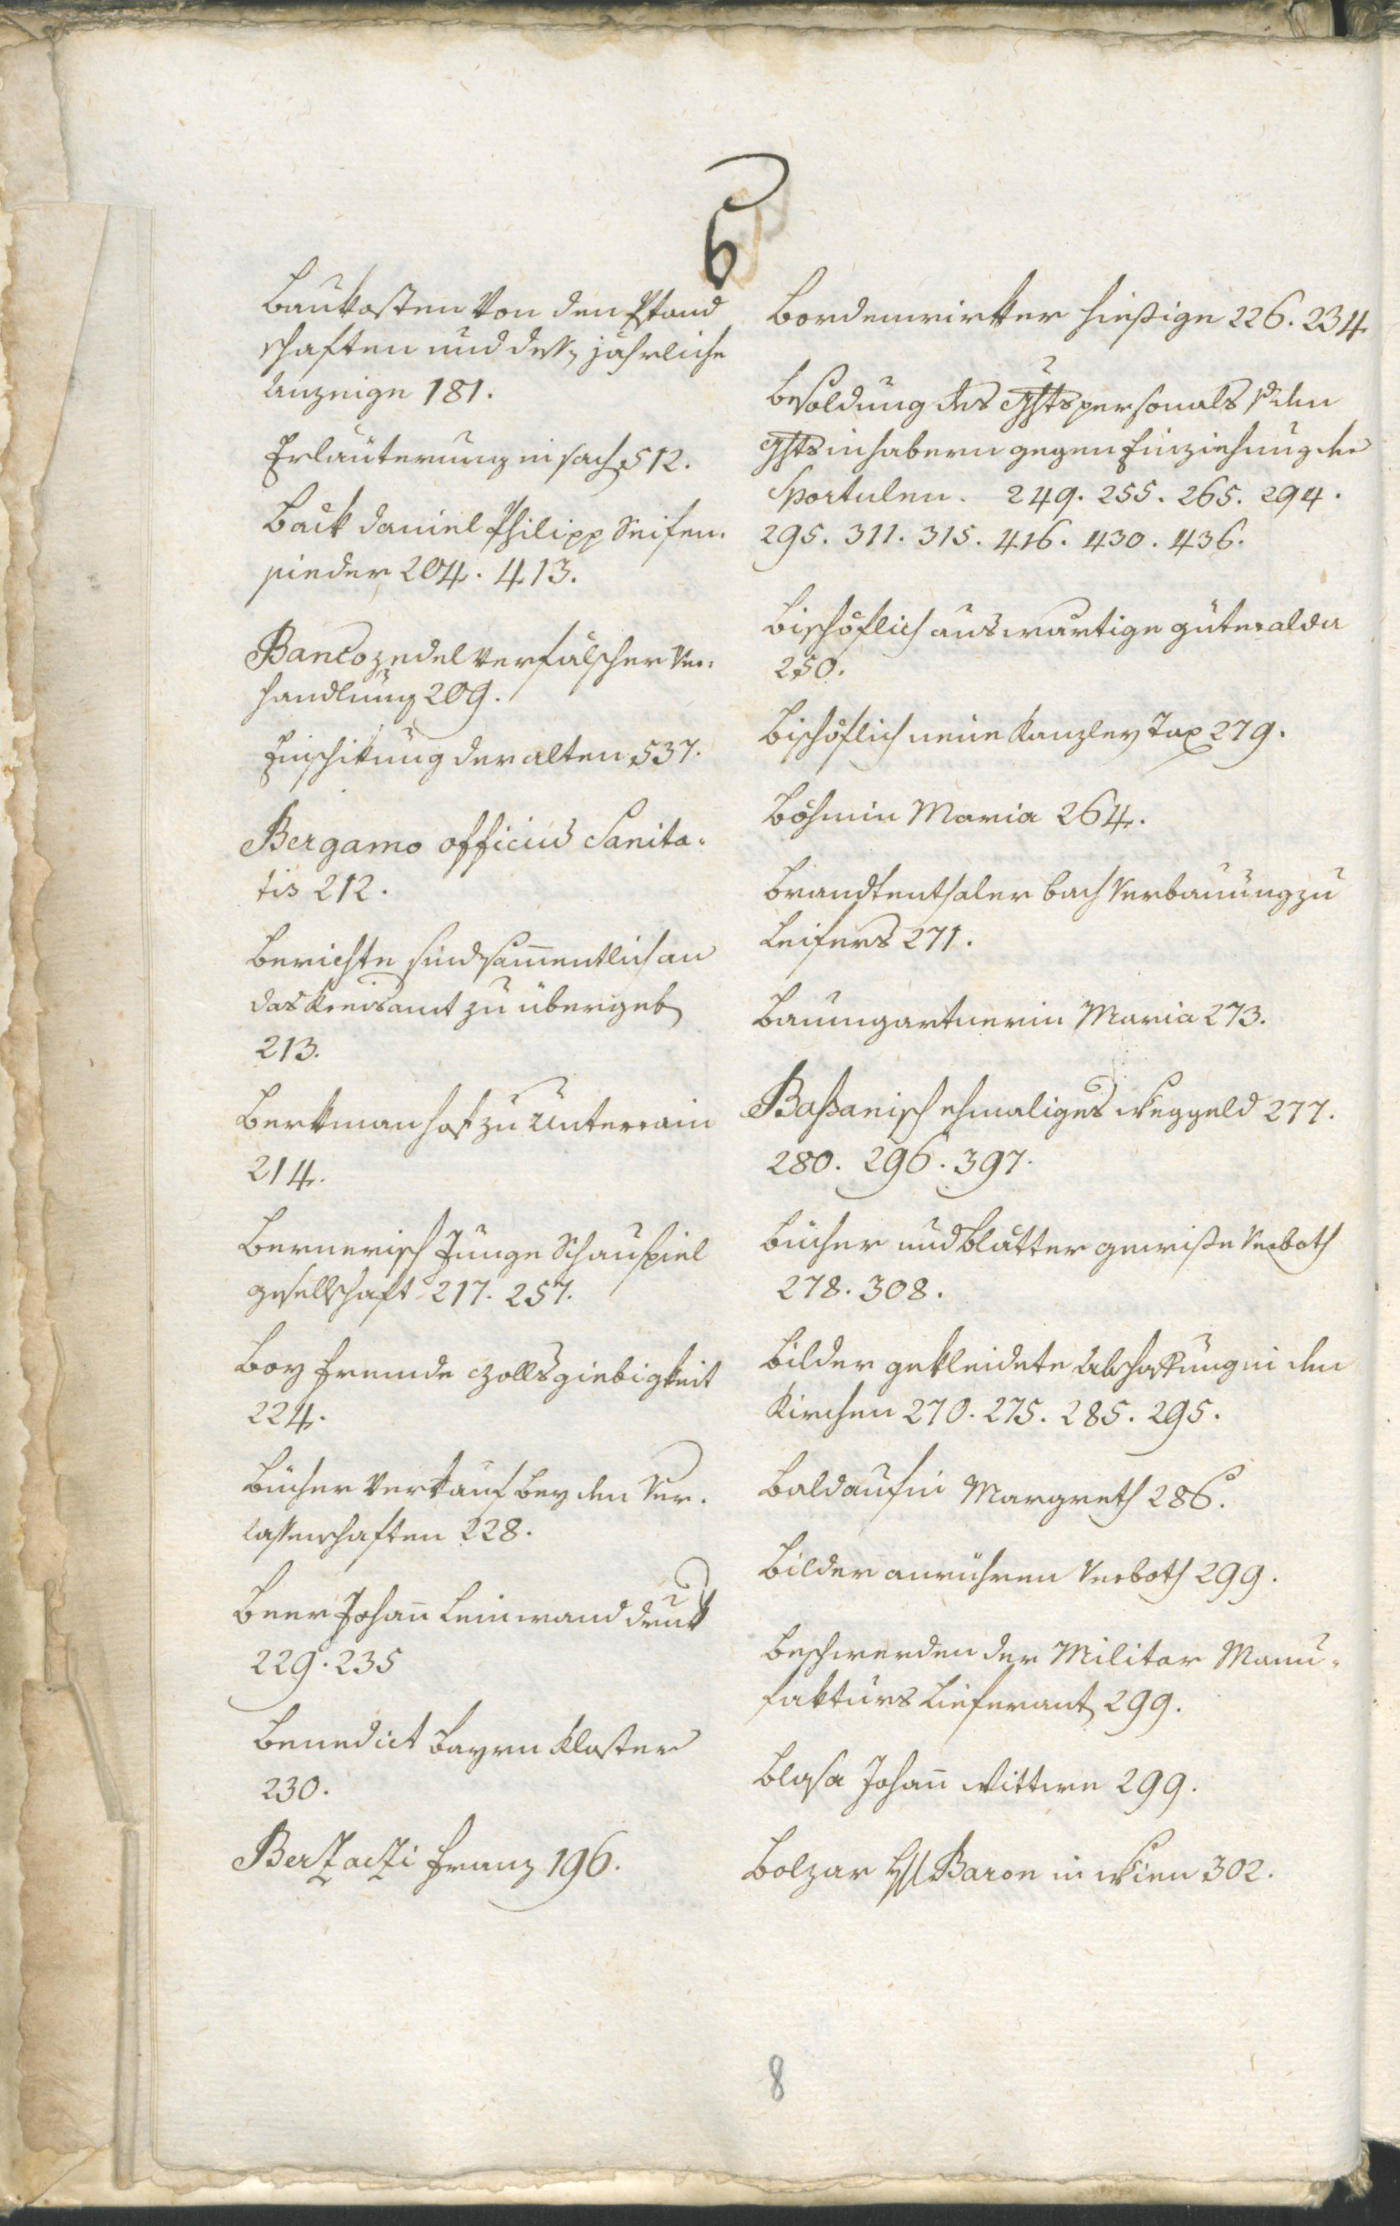 B
Baukosten Von den Pfand
schaften und dess jährliche
Anzeige 181.
Erläuterung in sach 512.
Bauk Daniel Philipp Seifen-
sieder 204. 413.
Bancozedel Verfälscher Ver-
handlung 209.
Einschikung der alten 537.
Bergamo officius Sanita-
tis 212.
Berichte sind samentlich an
das Kreisamt zu übergeb
213.
Berkman hof zu Unterrain
214.
Bernerisch Junge Schauspiel
gesellschaft 217. 257.
Boy fremde Zollsgiebigkeit
224.
Bücher Verkauf bey den Ver-
lassenschaften 228.
Beer Johan Leinwand druk
229. 235
Benedict Bayrn Kloster
230.
Franz 196.
Bordenwirker hießige 226. 234
Besoldung des Ghtspersonals
Ghtsinhabern gegen Einziehung der
Sportulen. 249. 255. 265. 294.
295. 311. 315. 416. 430. 436.
Bischöflich auswärtige güter
250.
Bischöflich neue Kanzley Tax 279.
Böhmin Maria 264.
Brandtenthaler bach Verbauung zu
Leifers 271.
Baumgartnerin Maria 273.
Baßanisch ehmaliges Weggeld 277.
280. 296. 397.
Bücher und Blätter gewisse Verboth
278. 308.
Bilder gekleidete Abschaffung in den
Kirchen 270. 275. 285. 295.
Baldaufin Margreth 286.
Bilder anrühren Verboth 299.
Beschwerden der Militar Manu-
fakturs Lieferant 299.
Blasa Johan Wittwe 299.
Bolzar Baron in Wien 302.
8